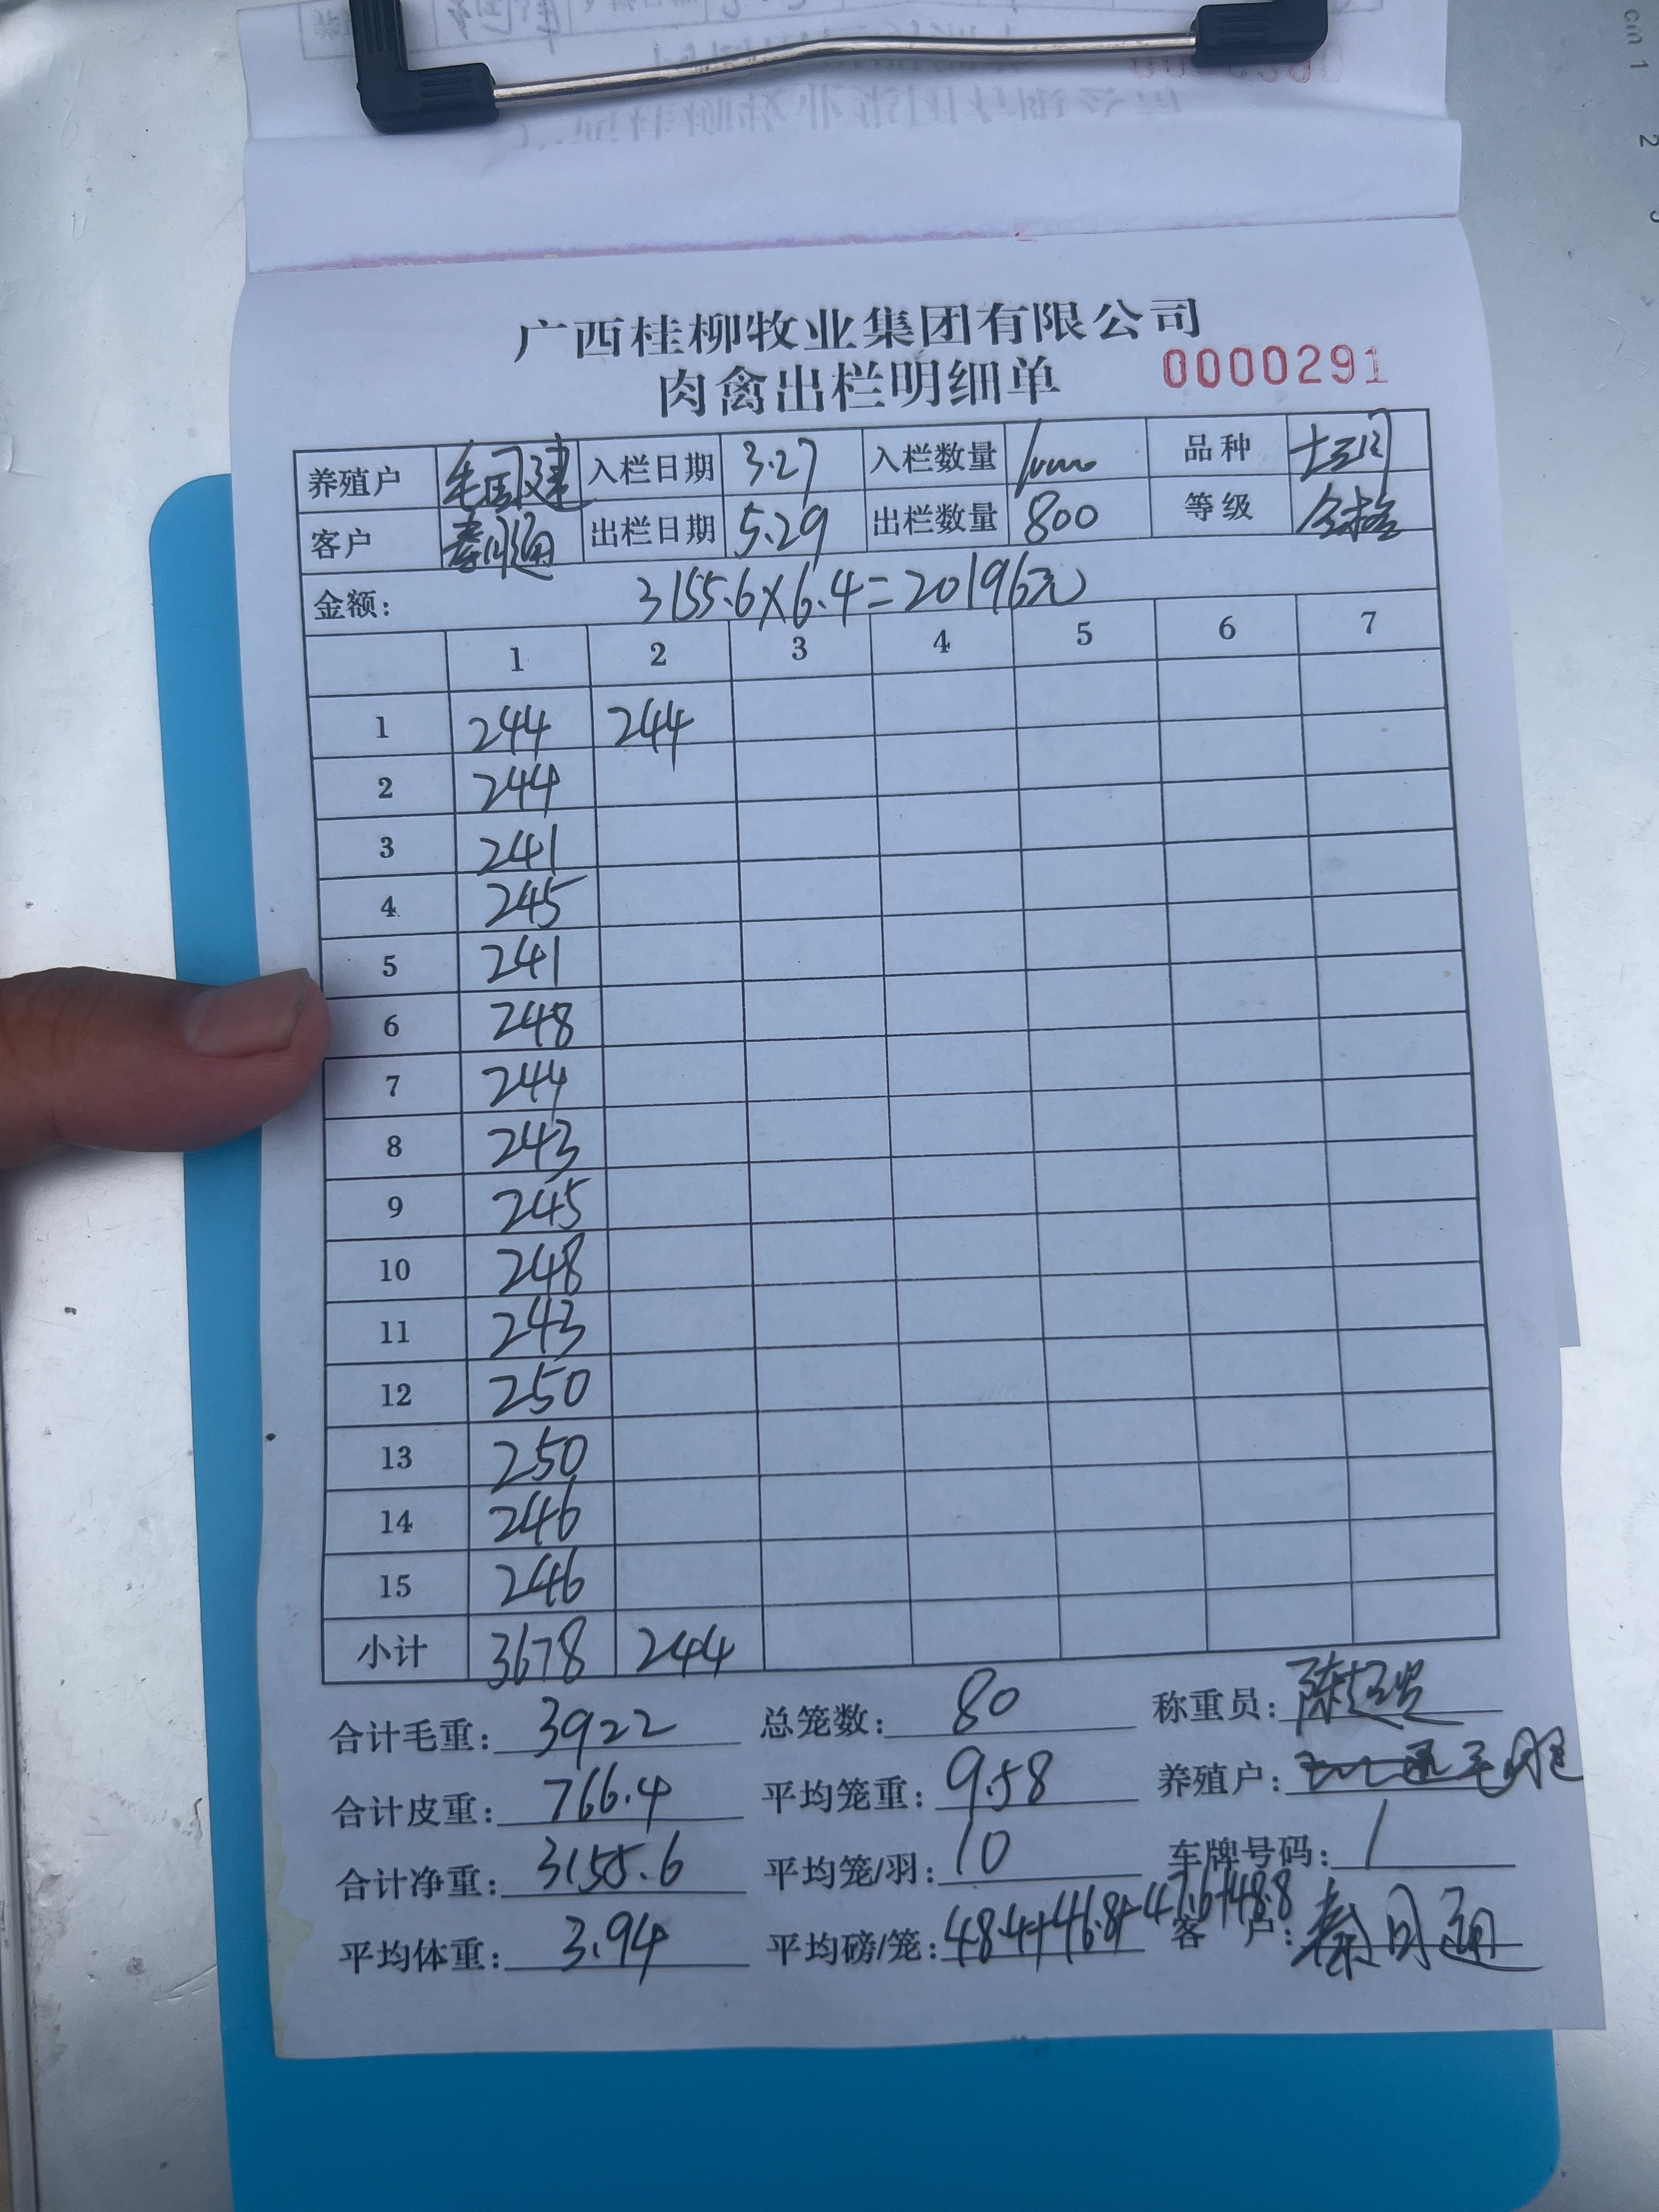 cm 1
2
3
广西桂柳牧业集团有限公司
肉禽出栏明细单 0000291
养殖户 毛国建 入栏日期 3.27 入栏数量 品种
客户 秦日通 出栏日期 5.29 出栏数量 800 等级 合格
金额: 3155.6×6.4=20196元
1 2 3 4 5 6 7
1 244 244
2 244
3 241
4 245
5 241
6 248
7 244
8 243
9 245
10 248
11 243
12 250
13 250
14 246
15 246
小计 3678 244
合计毛重: 3922 总笼数: 80 称重员: 陈
合计皮重: 766.4 平均笼重: 9.58 养殖户:
合计净重: 3155.6 平均笼/羽: 10 车牌号码: 1
平均体重: 3.94 平均磅/笼: 48.4+46.8+47.6+48.8 客 户: 秦日通